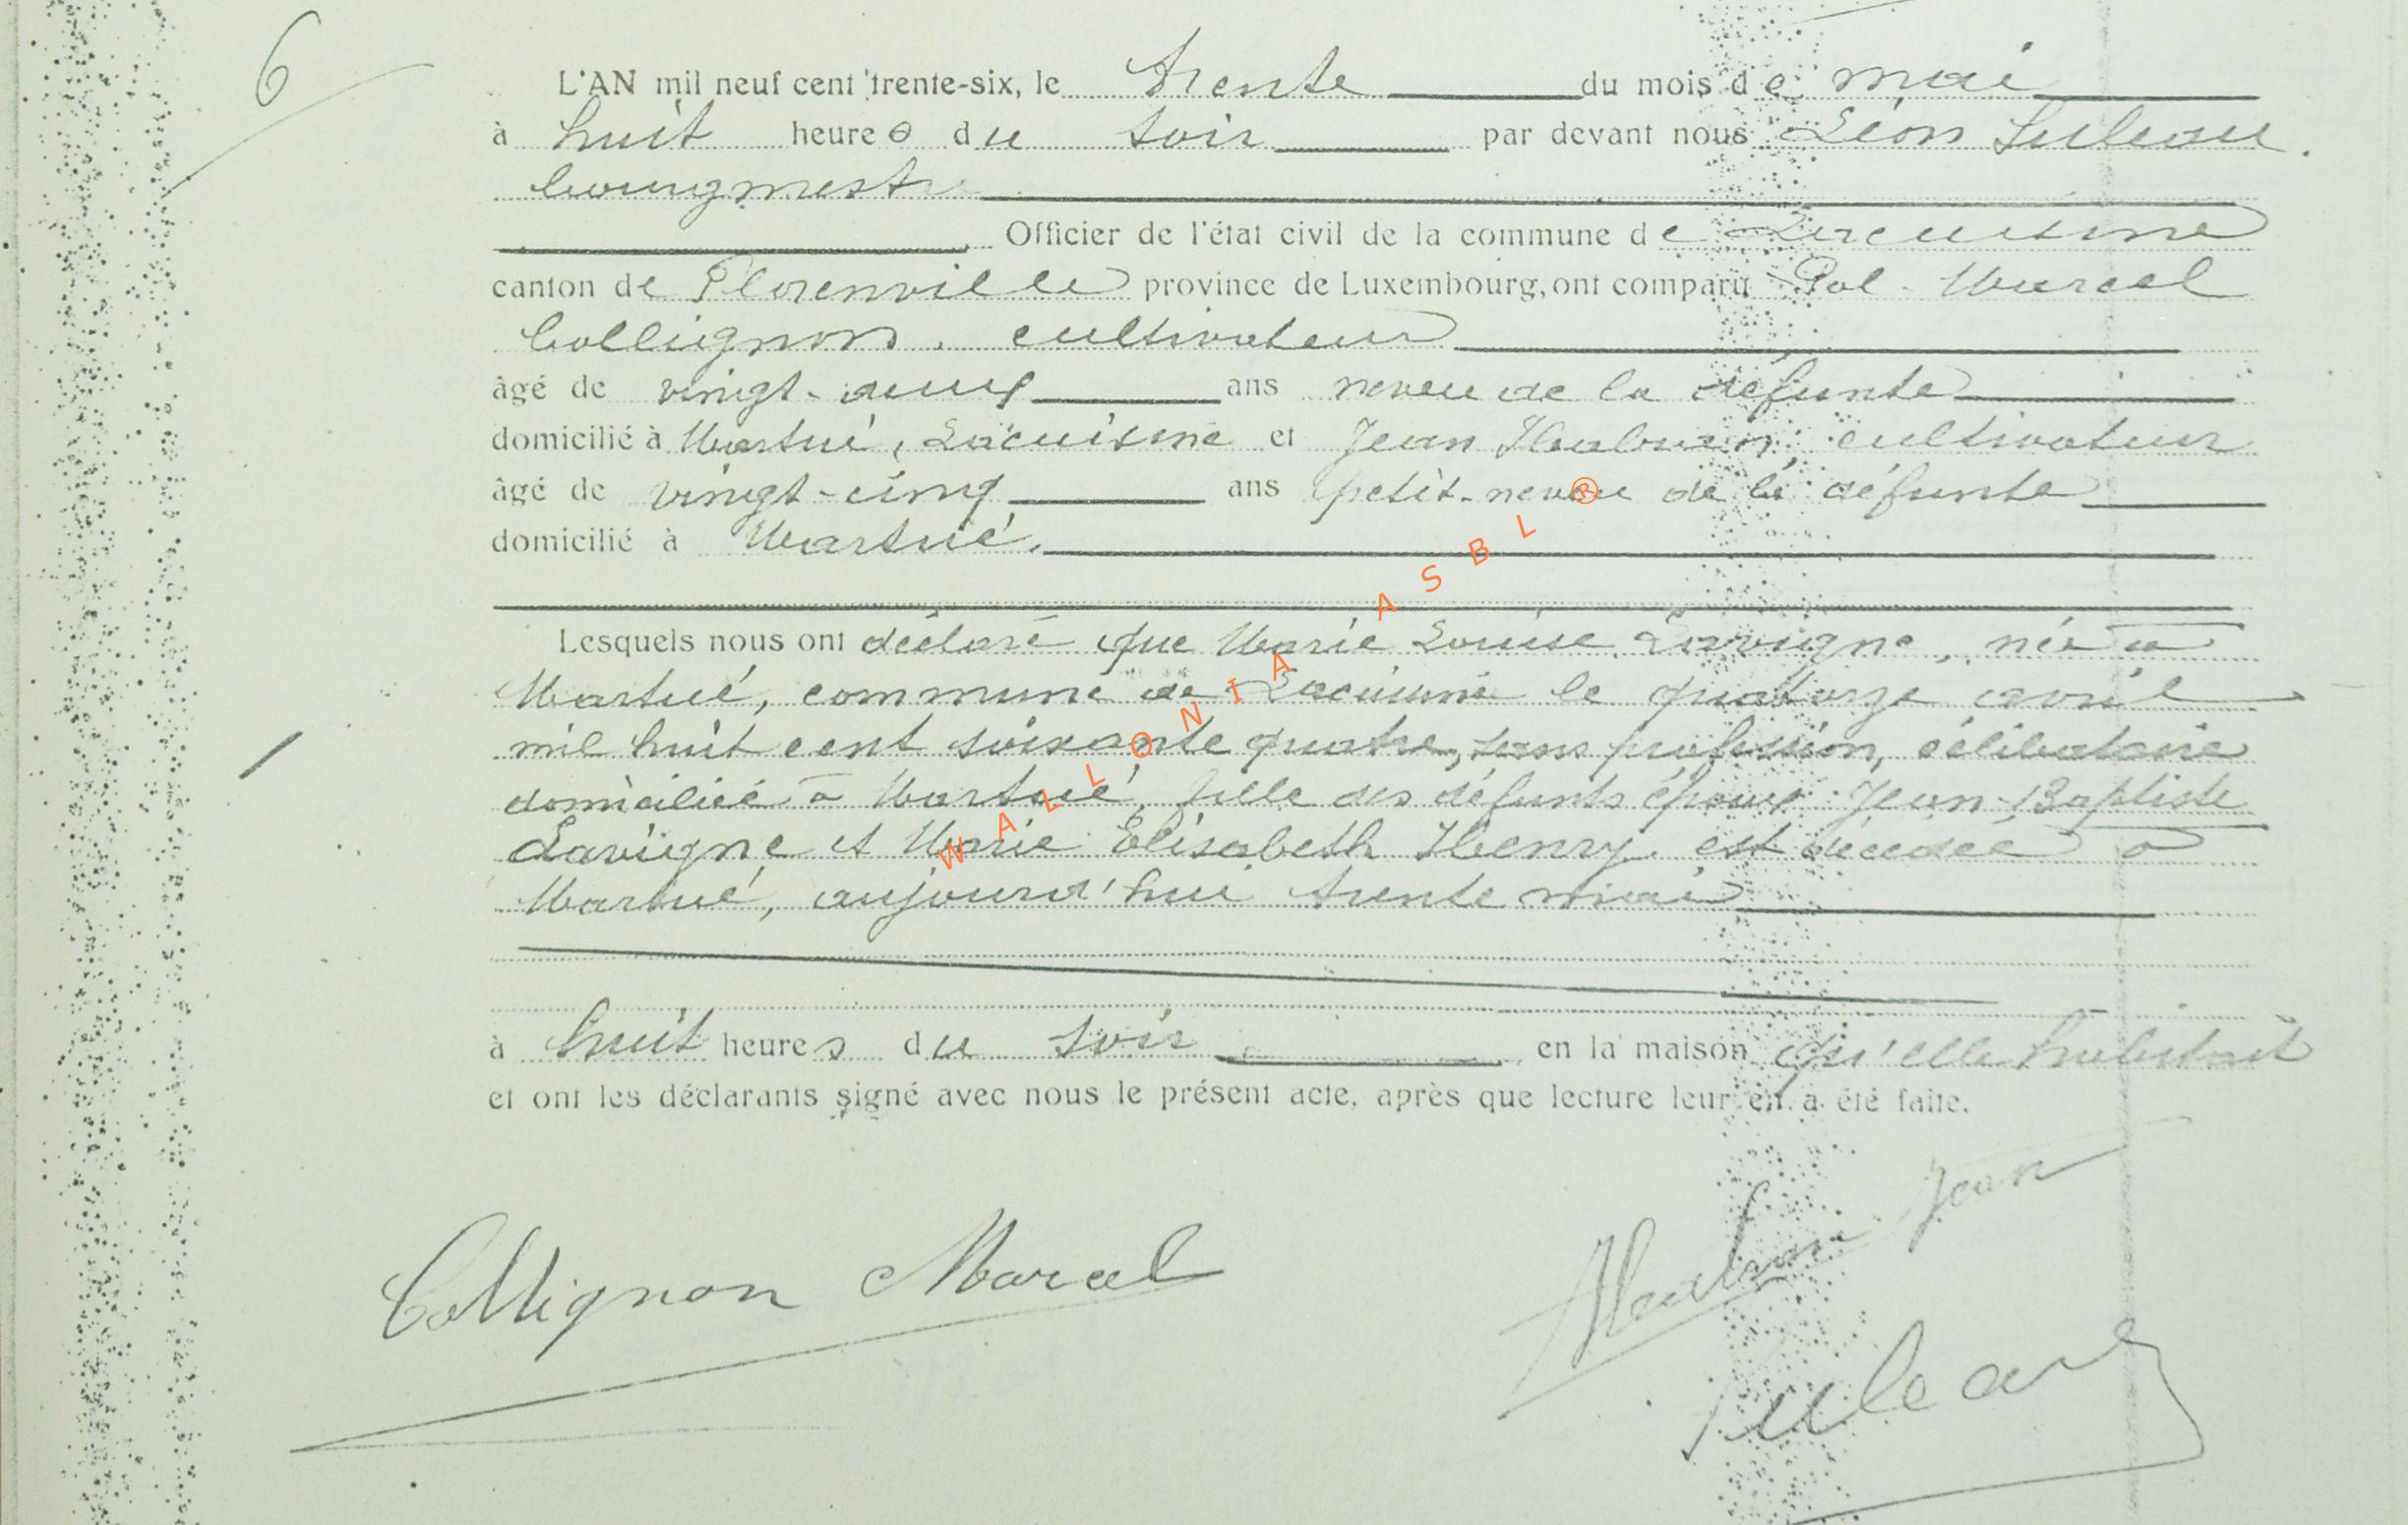 6
L'AN mil neuf cent trente-six, le trente du mois de mai
à huit heures du soir par devant nous Léon Suleau.
bourgmestre
Officier de l'état civil de la commune de Lacuisine
canton de Florenville province de Luxembourg, ont comparu Pol-Marcel
Collignon, cultivateur
âgé de vingt-deux ans neveu de la défunte
domicilié à Martué, Lacuisine et Jean cultivateur
âgé de vingt-cinq ans petit-neveu de la défunte
domicilié à Martué.
Lesquels nous ont déclaré que Marie Louise Lavigne, née à
Martué, commune de Lacuisine le quatorze avril
mil huit cent soixante quatre, sans profession, célibataire
domiciliée à Martué, fille des défunts époux Jean-Baptiste
Lavigne et Marie Elisabeth Henry, est décédée à
Martué, aujourd'hui trente mai
à huit heures du soir en la maison qu'elle habitait
et ont les déclarants signé avec nous le présent acte, après que lecture leur en a été faite.
Collignon Marcel
Jean
Suleau
WALLONIA ASBL ®